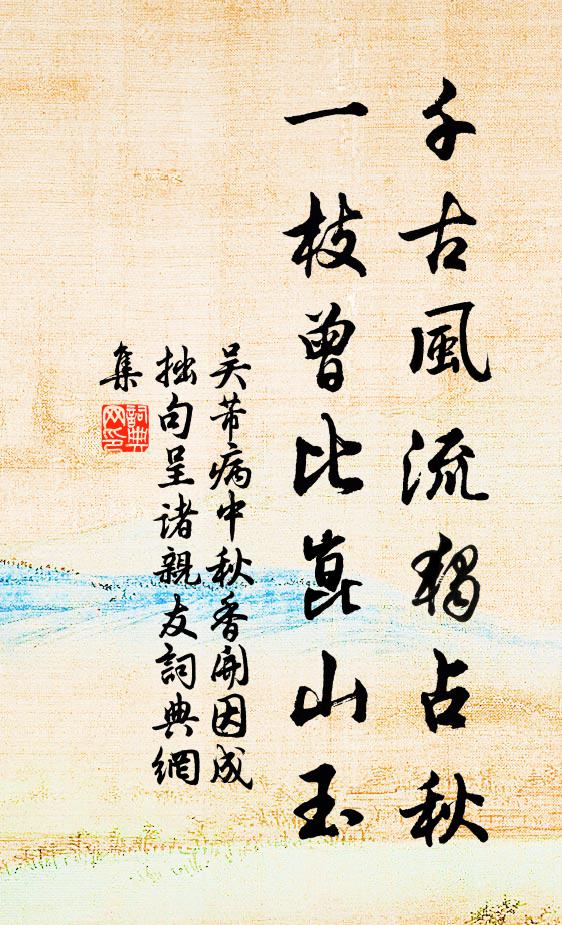 千古風流獨占秋
一枝曾比崑山玉
吴芾病中秋香開因成
拙句呈诸親友詞典網
集
詞典
网印